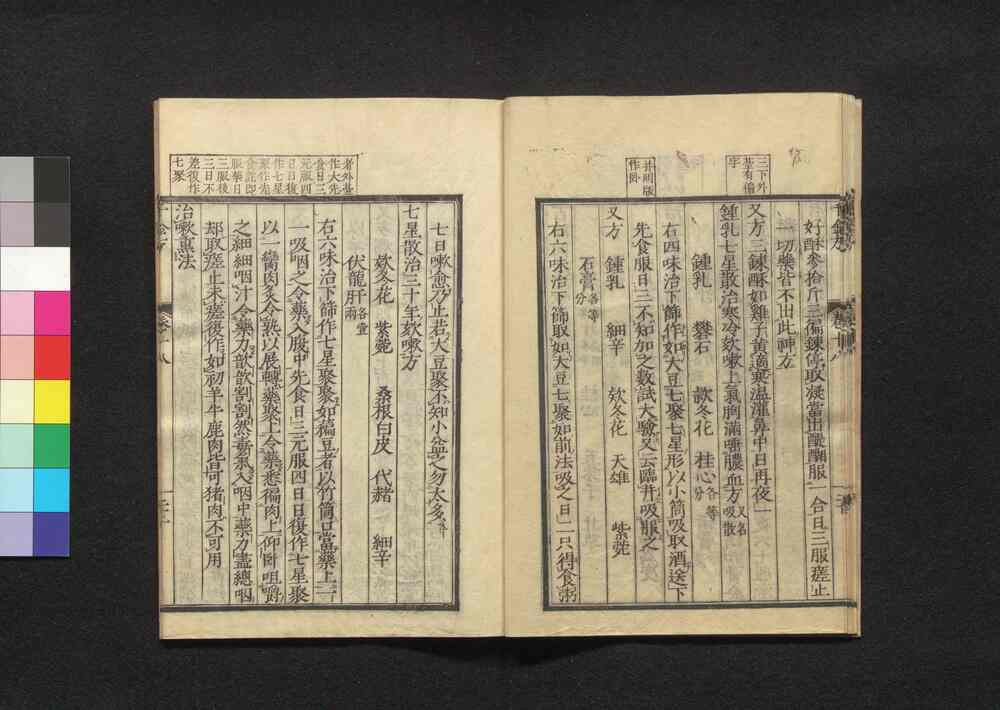 三下外
臺有偏
字
好酥參拾斤三偏鍊停取凝當出醍醐服一合日三服瘥止
一切藥皆不出此神方
又方三鍊酥如雞子黃適寒溫灌鼻中日再夜一
鍾乳七星散治寒冷欬嗽上氣胸滿唾膿血方又名吸散
鍾乳 礬石 款冬花 桂心各等分
右四味治下篩作如大豆七聚七星形以小筒吸取酒送下
先食服日三不知加之數試大驗又云臨井吸服之
井明版
作卧
又方 鍾乳 細辛 欵冬花 天雄 紫菀
石膏各等分
右六味治下篩取如大豆七聚如前法吸之日一只得食粥
七日嗽愈乃止若大豆聚不知小益之勿太多
七星散治三十年欬嗽方
欵冬花 紫菀 桑根白皮 代赭 細辛
伏龍肝各壹兩
右六味治下篩作七星聚聚如藊豆者以竹筒口當藥上一
一吸咽之令藥入腹中先食日三丸服四日日復作七星聚
以一臠肉炙令熟以展轉藥聚上令藥悉徧肉上仰卧咀嚼
之細細咽汁令藥力歆歆割割然毒氣入咽中藥力盡總咽
却取瘥止未瘥復作如初羊牛鹿肉皆可猪肉不可用
治嗽熏法
者外臺
作大先
食日三
丸服四
日日後
作七星
聚作先
食訖即
服藥日
三服後
三日不
差復作
七聚